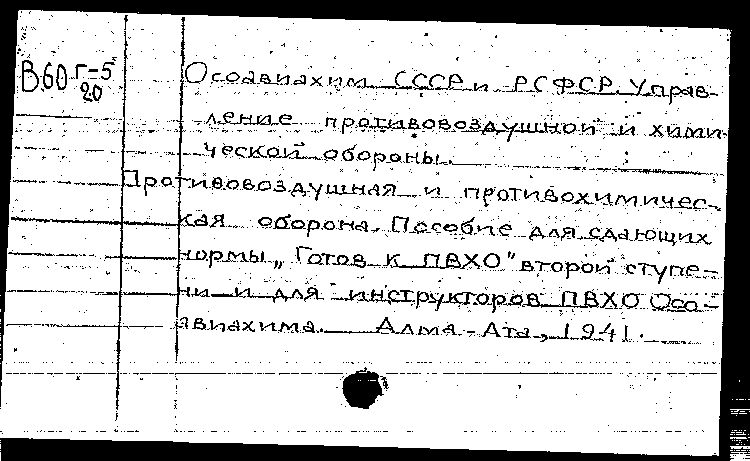 В60 г-5
20
Осоавиахим СССР и РСФСР. Управ-
ление противовоздушной и хими-
ческой обороны.
Противовоздушная и противохимичес-
кая оборона. Пособие для сдающих
нормы „Готов к ПВХО" второй ступе-
ни и для инструкторов ПВХО Осо-
авиахима. Алма-Ата, 1941.